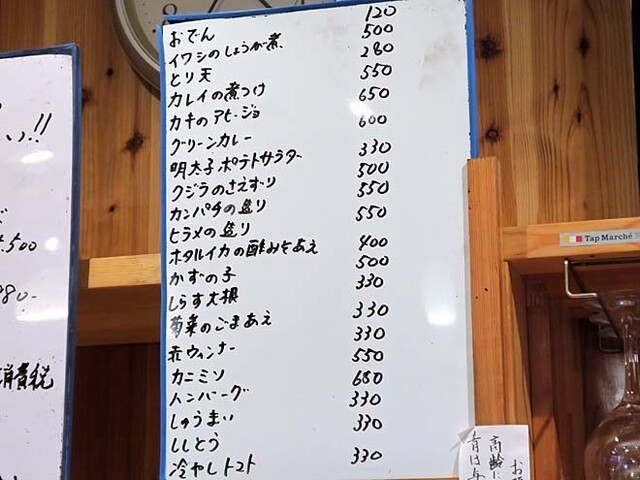 い!!
500
980-
消費税
おでん 120
イワシのしょうが煮 500
とり天 280
カレイの煮つけ 550
カキのアヒージョ 650
グリーンカレー 600
明太子ポテトサラダ 330
クジラのさえずり 500
カンパチの造り 550
ヒラメの造り 550
ホタルイカの酢みそあえ 400
かずの子 500
しらす大根 330
菊菜のごまあえ 330
赤ウィンナー 330
カニミソ 550
ハンバーグ 680
しゅうまい 330
ししとう 330
冷やしトマト 330
Tap Marché
お
高齢に